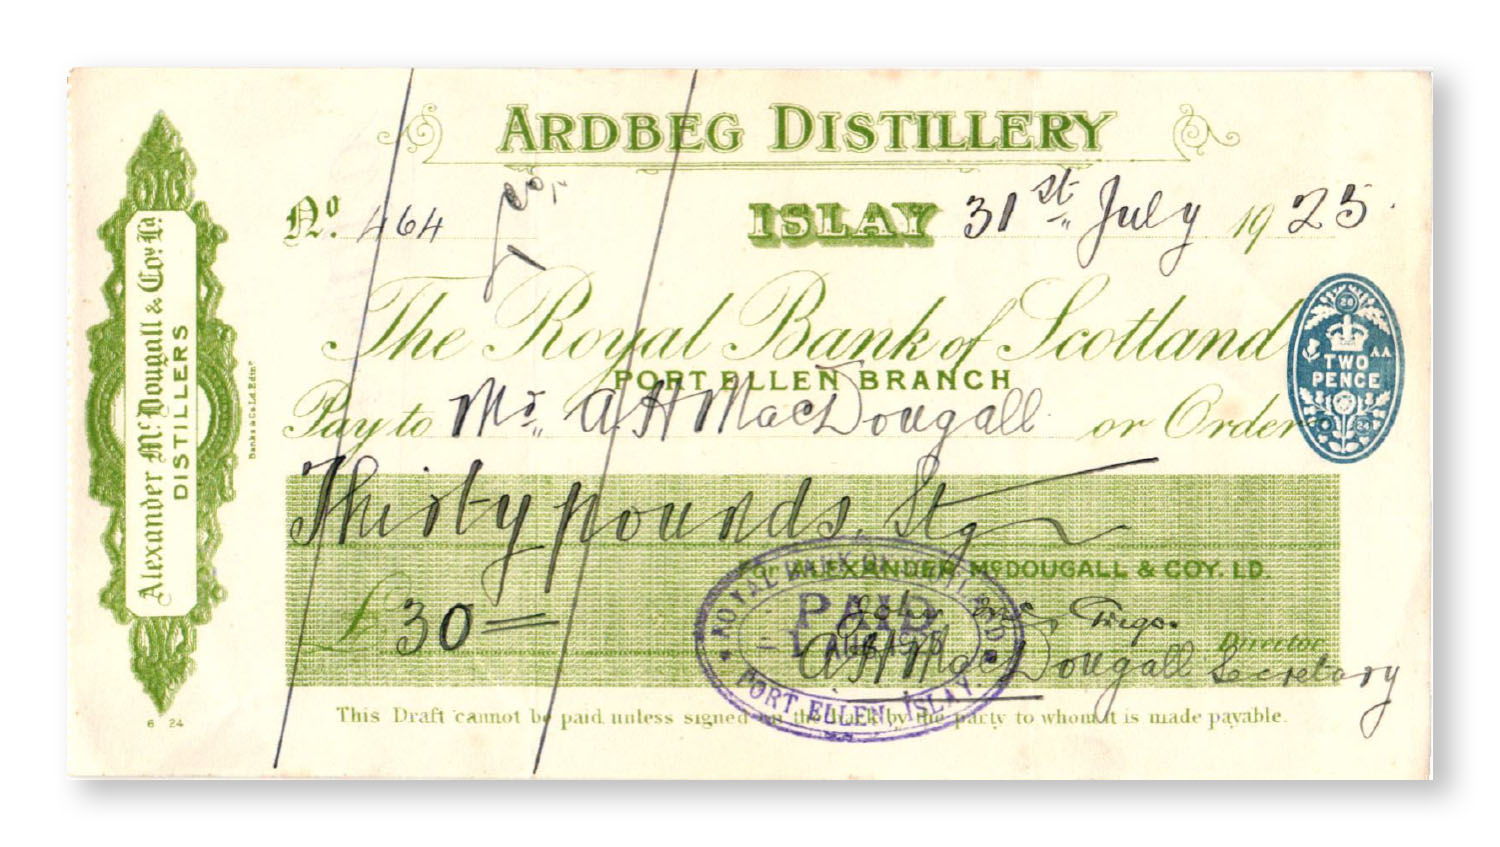 ARDBEG DISTILLERY
Nº. 464
& Co.
ISLAY 31st July 1925.
The Royal Bank of Scotland
PORT ELLEN BRANCH
Pay to Mr. A H MacDougall or Order
Thirty pounds, Stg
ALEXANDER McDOUGALL & COY. LD.
£30
Director
A H MacDougall Secretary
This Draft cannot be paid unless signed on the back by the party to whom it is made payable.
Alexander McDougall & Coy. Ld.
DISTILLERS
Banks & Co Ld. Edinr
6 24
TWO
PENCE
AA
20
24
ROYAL BANK OF SCOTLAND
PAID
1 AUG 1925
PORT ELLEN, ISLAY